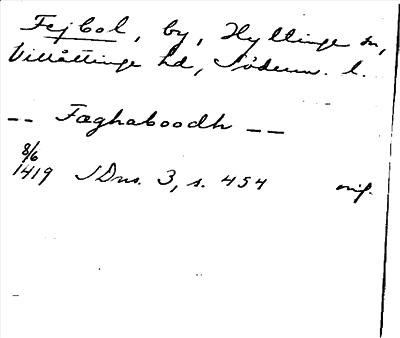 Fejbol, by, Hyltinge sn,
Villåttinge hd, Söderm. l.
-- Fæghaboodh --
8/6
1419 SDns. 3, s. 454 orig.